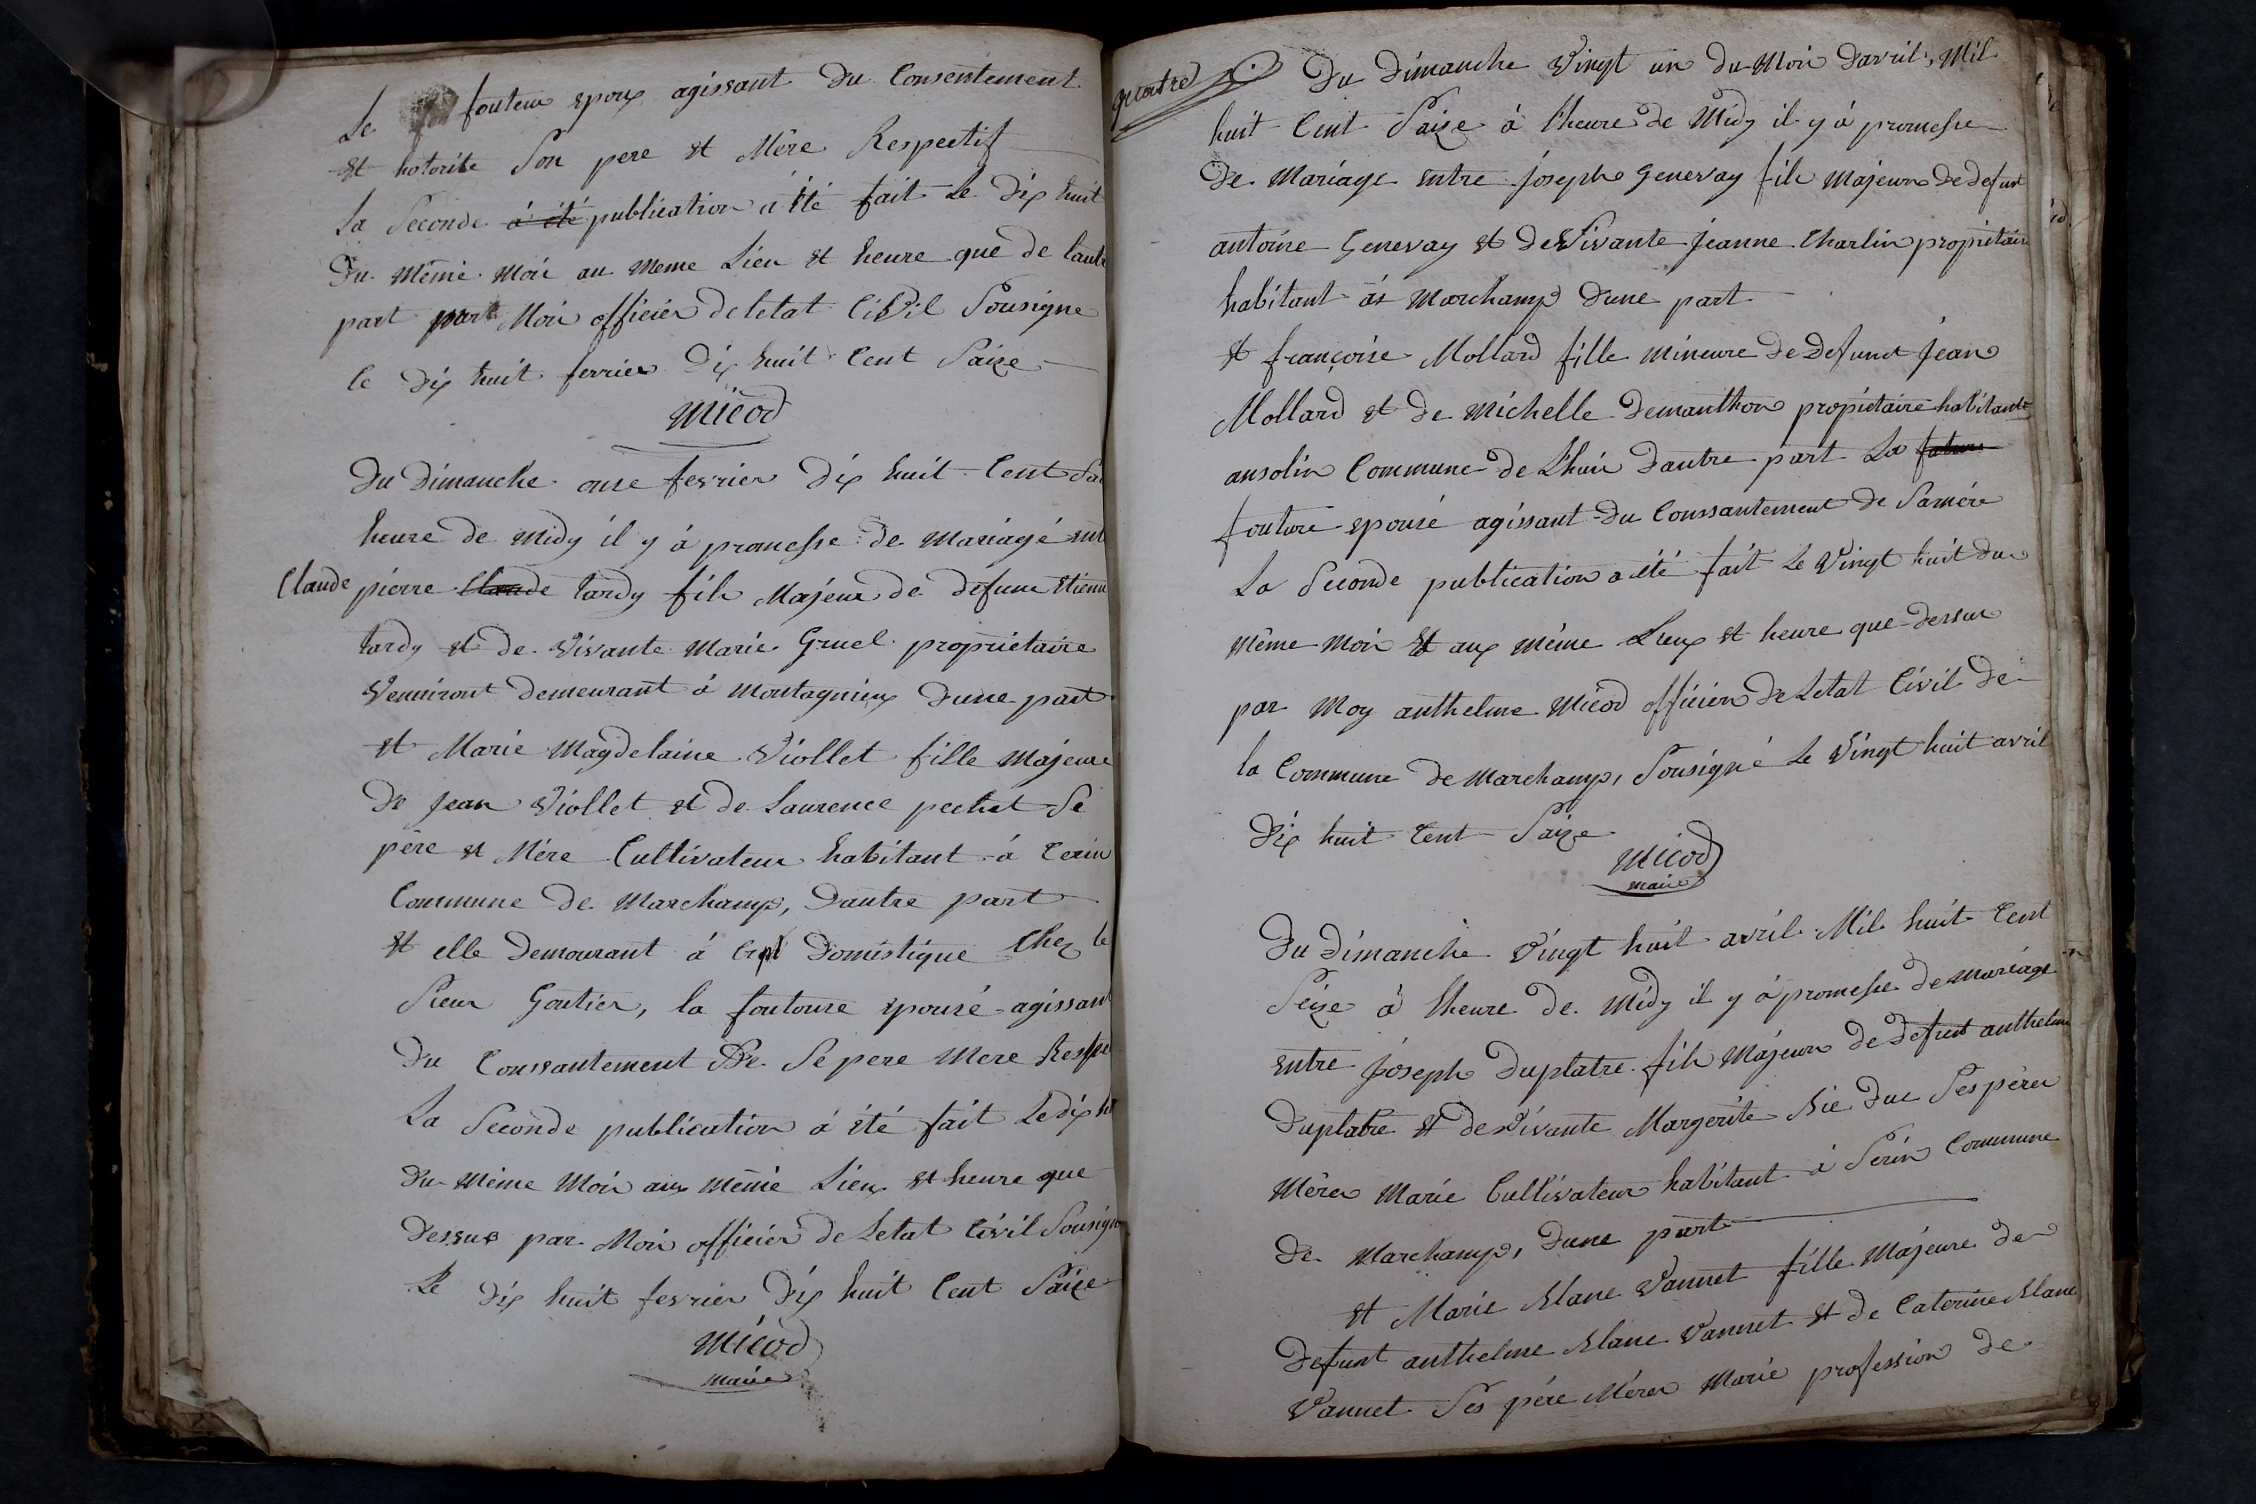 Le fouteur epoux agissant du Consentement
et hotorite Son pere et Mère Respectif
La Seconde a été publication a été fait Le Dix huit
du même moi au meme Lieu et heure que de l'autr
part par Moi officier de letat Civil Sousigne
le dix huit fevrier dix huit Cent Saize
Micod
Du Dimanche onse fevrier Dix huit Cent Sai
heure de Midy il y a promesse de Mariagé ent
Claude pierre Claude tardy fils Majeur de defunt Etienn
tardy et de vivante Marie Gruel proprietaire
demeurant à Montagnieux dune part
et Marie Magdelaine Viollet fille Majeure
de Jean Viollet et de Laurence pechet Se
père et Mére Cultivateur habitant à Cerin
Commune de Marchamp, dautre part
et elle demourant à domistique Chez le
Sieur Goutier, la foutoure epousé agissant
du Conssantement De Se pere Mere Respe
La Seconde publication à été fait Le dix h
du Même Moi aux même Lieux et heure que
dessus par Moi officier de Letat Civil Sousign
Le dix huit fevrier dix huit Cent Saize
Micod
maire
quatre Du dimanche Vingt un du Moi davril, Mil
huit Cent Saize à l'heure de Midy il y à promesse
de Mariage entre Joseph Genevay fils Majeur de defunt
antoine Genevay et de Vivante Jeanne Charlin propriétaire
habitant às Marchamp dune part
et françoise Mollard fille mineure de defunct Jean
Mollard et de Michelle Demanthon propietaire habitante
ansolin Commune de L'huis dautre part La future
fouture epousé agissant du Conssantement de Samére
La Seconde publication a été fait Le Vingt huit du
même moi Et aux même Lieux et heure que dessu
par Moy anthelme Micod officier de Letat Civil de
la Commune de Marchamp, Sousigné Le Vingt huit avril
dix huit Cent Saize
Micod
maire
Du dimanche Vingt huit avril Mil huit Cent
Seize à lheure de Midy il y à promesse de mariage
entre Joseph Duplatre fils Majeur de defunt anthelme
Duplatre et de Vivante Margerite Bie duc Ses père
Mére Marié Cultivateur habitant à Serin Commune
de Marchamp, dune part
et Marie Blanc Vannet fille Majeure de
defunt anthelme Blanc Vannet et de Caterine Blanc
Vannet Ses pére Mére Marié profession de